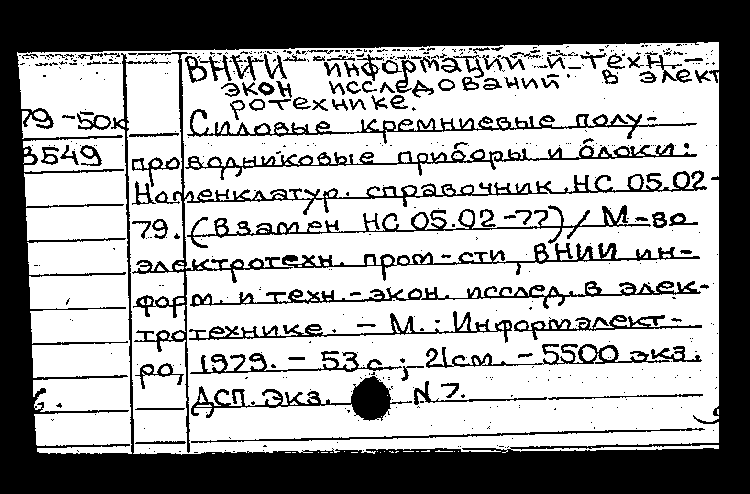 ВНИИ информации и техн.-
экон исследований в элект
ротехнике.
79-50к
Силовые кремниевые полу-
3549
проводниковые приборы и блоки:
Номенклатур. справочник.НС 05.02-
79. (Взамен НС 05.02-77) / М-во
электротехн. пром-сти, ВНИИ ин-
форм. и техн.-экон. исслед. в элек-
тротехнике. – М.: Информэлект-
ро, 1979. – 53 с; 21см. – 5500 экз.
ДСП. Экз. N 7.